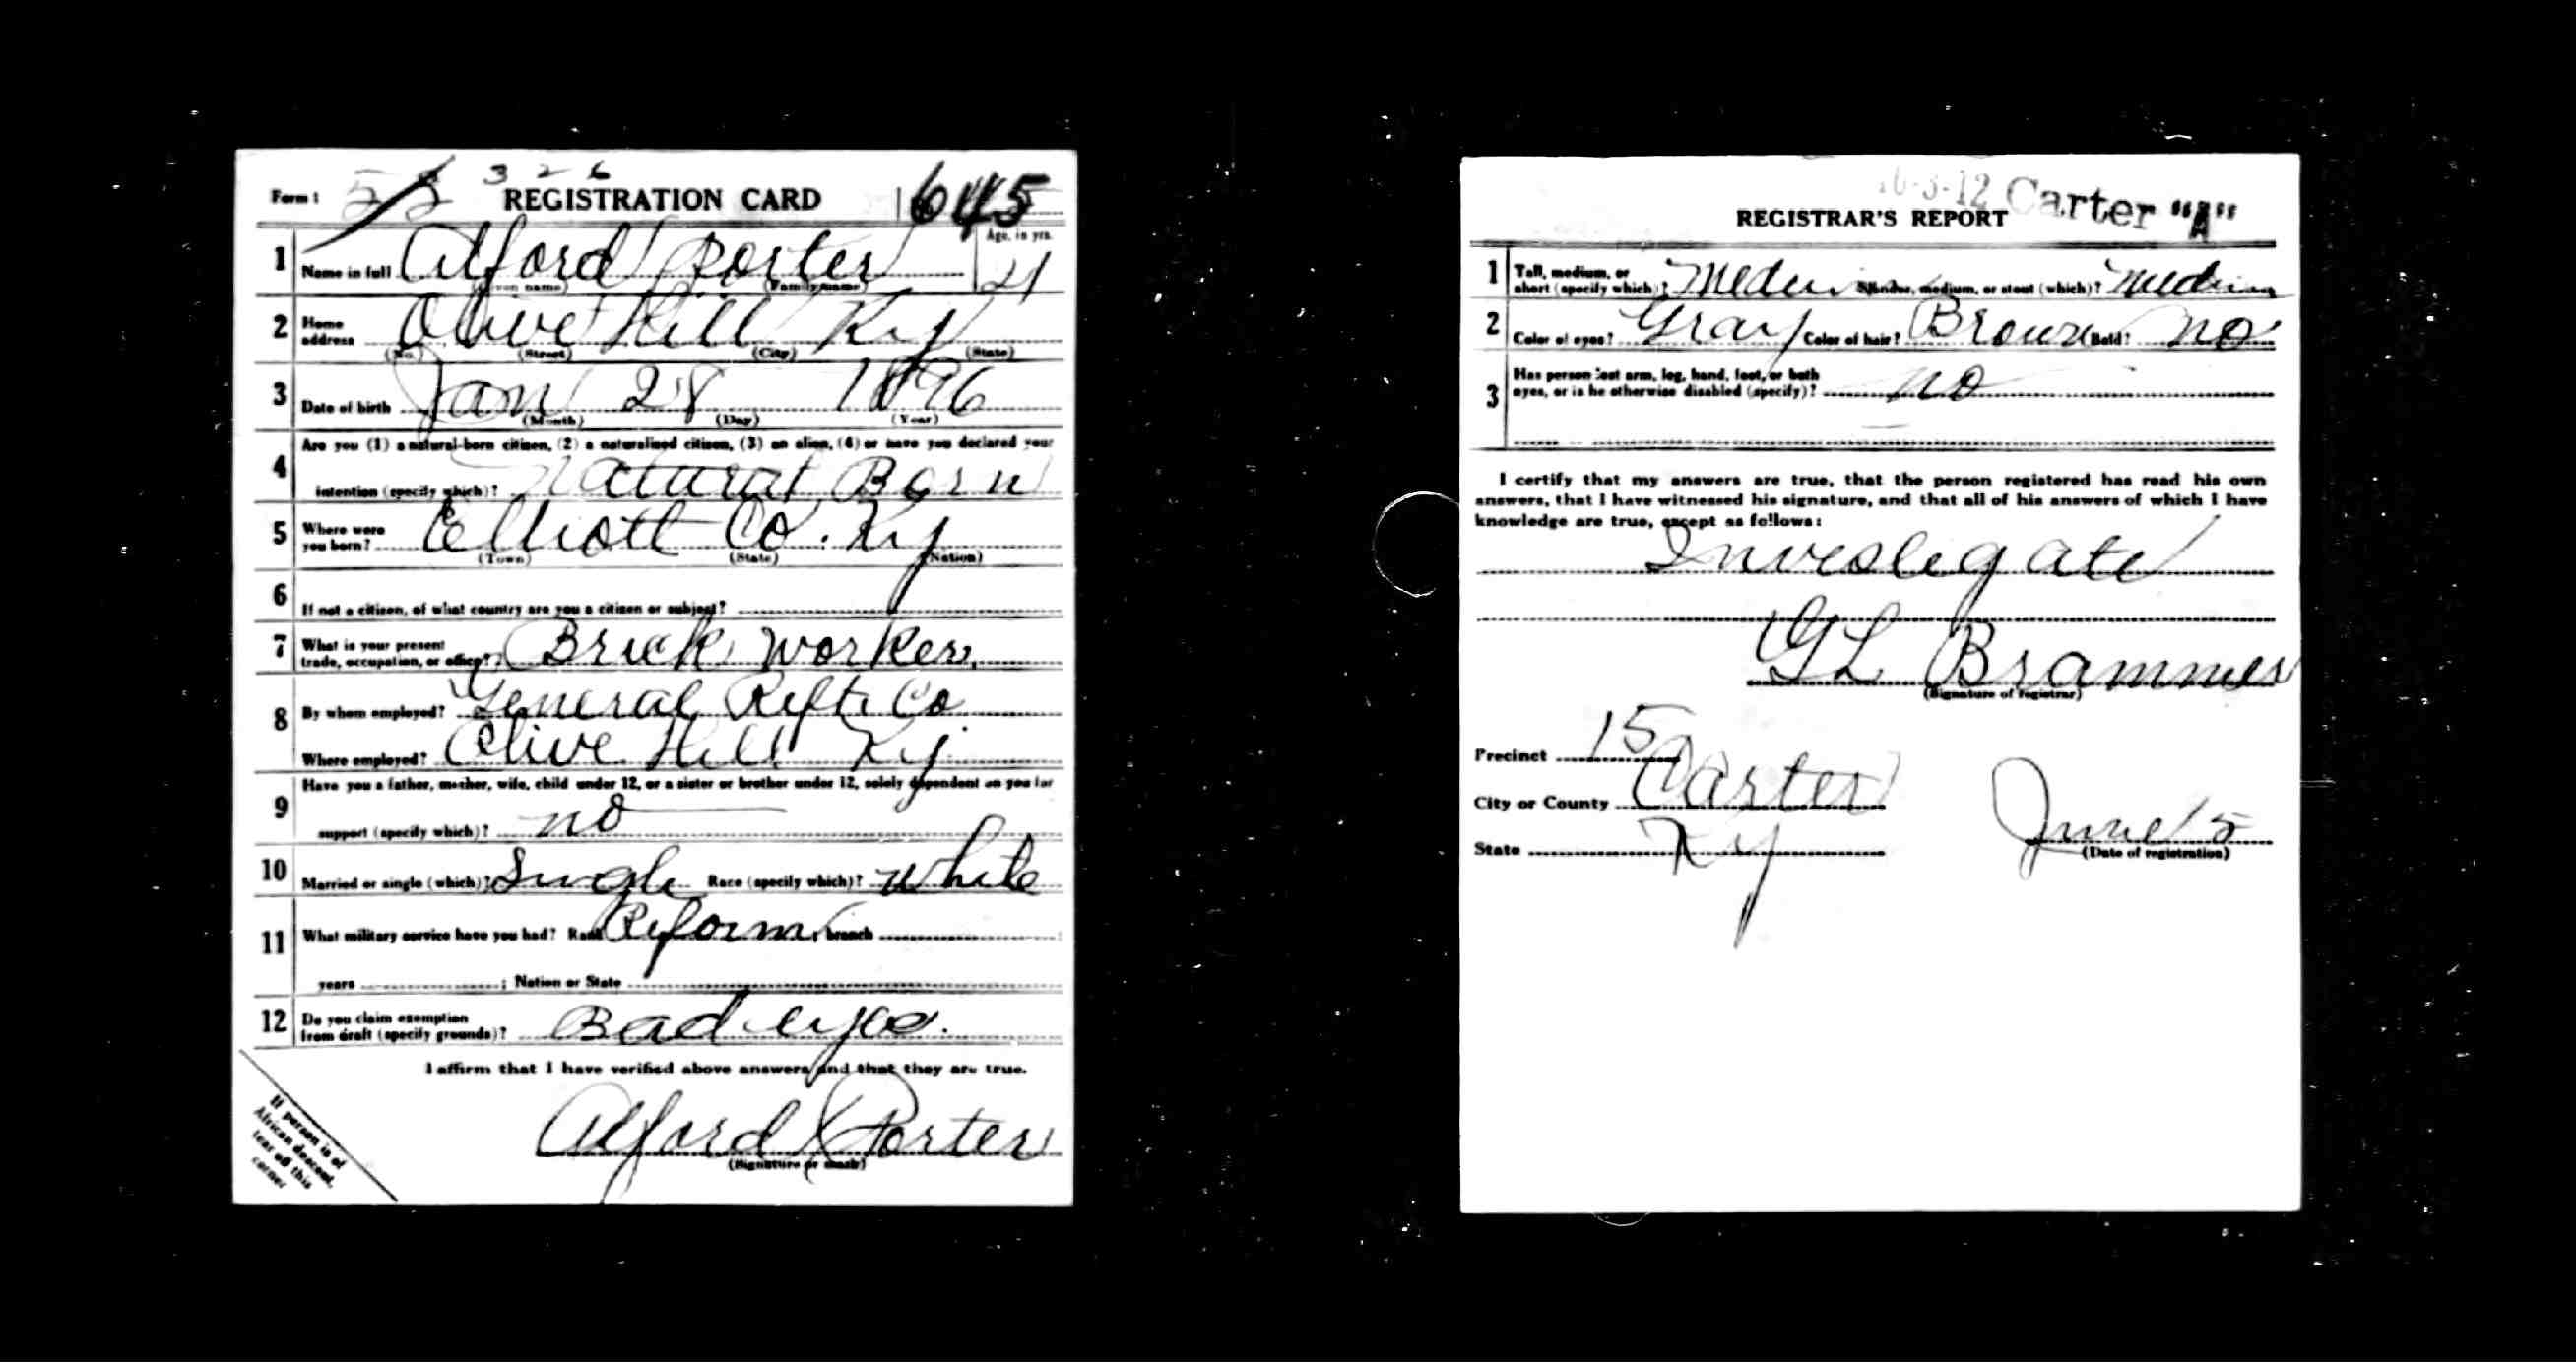 3 2 6
Form 1 REGISTRATION CARD 645
1 Name in full Alford Porter Age, in yrs. 21
(Given name) (Family name)
2 Home address Olive Hill Ky
(No.) (Street) (City) (State)
3 Date of birth Jan 28 1896
(Month) (Day) (Year)
4 Are you (1) a natural-born citizen, (2) a naturalized citizen, (3) an alien, (4) or have you declared your
intention (specify which)? Natural Born
5 Where were you born? Elliott Co. Ky
(Town) (State) (Nation)
6 If not a citizen, of what country are you a citizen or subject?
7 What is your present trade, occupation, or office? Brick Worker
8 By whom employed? General Reft. Co
Where employed? Olive Hill Ky
9 Have you a father, mother, wife, child under 12, or a sister or brother under 12, solely dependent on you for
support (specify which)? no
10 Married or single (which)? Single Race (specify which)? White
11 What military service have you had? Rank Reform; branch
years ; Nation or State
12 Do you claim exemption from draft (specify grounds)? Bad eyes.
I affirm that I have verified above answers and that they are true.
Alford Porter
(Signature or mark)
If person is of
African descent,
tear off this
corner
Carter "A"
REGISTRAR'S REPORT
1 Tall, medium, or short (specify which)? Medium Slender, medium, or stout (which)? Medium
2 Color of eyes? Gray Color of hair? Brown Bald? No
3 Has person lost arm, leg, hand, foot, or both
eyes, or is he otherwise disabled (specify)? no
I certify that my answers are true, that the person registered has read his own
answers, that I have witnessed his signature, and that all of his answers of which I have
knowledge are true, except as follows:
Investigate
G L Brammer
(Signature of registrar)
Precinct 15
City or County Carter
State Ky June 5
(Date of registration)